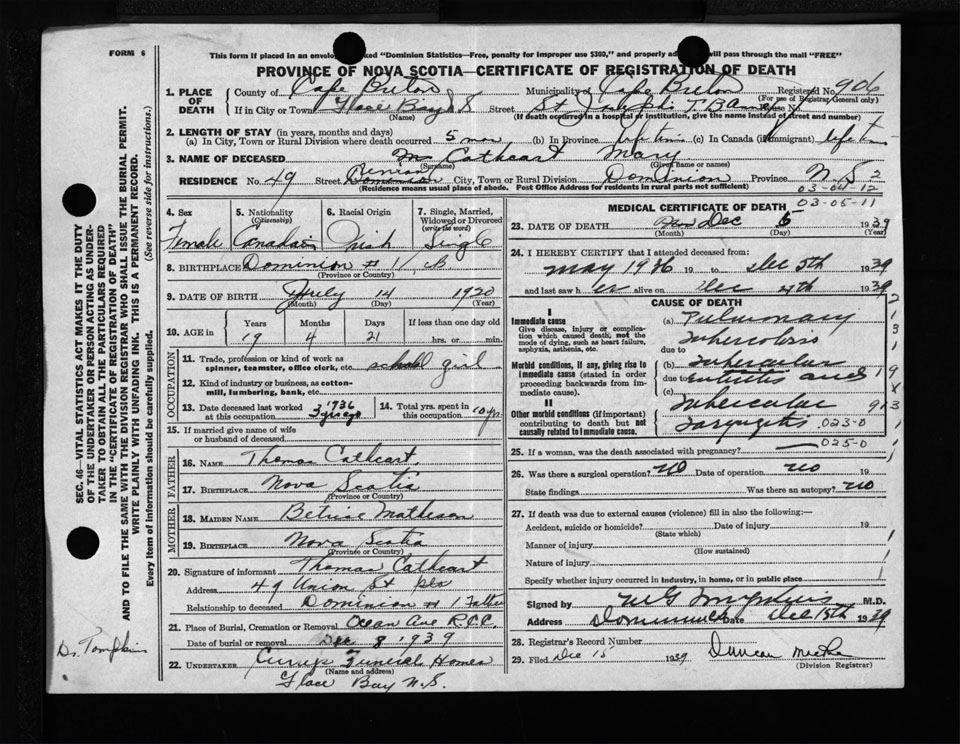 FORM 6
This form if placed in an envelope marked "Dominion Statistics—Free, penalty for improper use $300," and properly will pass through the mail "FREE"
PROVINCE OF NOVA SCOTIA—CERTIFICATE OF REGISTRATION OF DEATH
1. PLACE OF DEATH
County of Cape Breton Municipality of Cape Breton Registered No. 906
(For use of Registrar General only)
If in City or Town Glace Bay Street St Joseph
(Name) (If death occurred in a hospital or institution, give the name instead of street and number)
2. LENGTH OF STAY (in years, months and days)
(a) In City, Town or Rural Division where death occurred 5 mos (b) in Province life time (c) In Canada (if immigrant) life time
3. NAME OF DECEASED Mc Cathcart Mary
(Surname) (Given name or names)
RESIDENCE No. 49 Street Union City, Town or Rural Division Dominion Province N.S 2
(Residence means usual place of abode. Post Office Address for residents in rural parts not sufficient)
03-04-12
03-05-11
4. Sex 5. Nationality (Citizenship) 6. Racial Origin 7. Single, Married, Widowed or Divorced (write the word)
Female Canadain Irish Single
8. BIRTHPLACE Dominion # 1 C.B.
(Province or Country)
9. DATE OF BIRTH July 14 1920
(Month) (Day) (Year)
10. AGE in Years Months Days If less than one day old
19 4 21 hrs. or min.
OCCUPATION
11. Trade, profession or kind of work as spinner, teamster, office clerk, etc. school girl
12. Kind of industry or business, as cotton-mill, lumbering, bank, etc.
13. Date deceased last worked at this occupation 1936 3 yrs ago
14. Total yrs. spent in this occupation 10 yrs
15. If married give name of wife or husband of deceased
FATHER
16. NAME Thomas Cathcart
17. BIRTHPLACE Nova Scotia
(Province or Country)
MOTHER
18. MAIDEN NAME Betrise Matheson
19. BIRTHPLACE Nova Scotia
(Province or Country)
20. Signature of informant Thomas Cathcart
Address 49 Union St
Relationship to deceased Dominion # 1 Father
21. Place of Burial, Cremation or Removal Ocean Ave R.C.C.
Date of burial or removal Dec 8 1939
22. UNDERTAKER Funeral Homes
(Name and address)
Glace Bay N.S.
MEDICAL CERTIFICATE OF DEATH
23. DATE OF DEATH Dec 5 1939
(Month) (Day) (Year)
24. I HEREBY CERTIFY that I attended deceased from:
May 1936 19 to Dec 5th 1939
and last saw her alive on Dec 4th 1939
CAUSE OF DEATH
I
Immediate cause
Give disease, injury or complication which caused death, not the mode of dying, such as heart failure, asphyxia, asthenia, etc.
(a) Pulmonary
Tuberculosis
due to
Morbid conditions, if any, giving rise to immediate cause (stated in order proceeding backwards from immediate cause).
(b) Tubercular
due to enteritis and
(c)
II
Other morbid conditions (if important) contributing to death but not causally related to immediate cause.
Tubercular
Laryngitis 023-0
025-0
25. If a woman, was the death associated with pregnancy?
26. Was there a surgical operation? NO Date of operation NO
State findings Was there an autopsy? NO
27. If death was due to external causes (violence) fill in also the following:—
Accident, suicide or homicide? Date of injury 19
(State which)
Manner of injury
(How sustained)
Nature of injury
Specify whether injury occurred in industry, in home, or in public place
Signed by M.D.
Address Dominion Date Dec 15th 1939
28. Registrar's Record Number
29. Filed Dec 15 1939 Duncan
(Division Registrar)
SEC. 46—VITAL STATISTICS ACT MAKES IT THE DUTY
OF THE UNDERTAKER OR PERSON ACTING AS UNDERTAKER TO OBTAIN ALL THE PARTICULARS REQUIRED
IN THE "CERTIFICATE OF REGISTRATION OF DEATH"
AND TO FILE THE SAME WITH THE DIVISION REGISTRAR WHO SHALL ISSUE THE BURIAL PERMIT.
WRITE PLAINLY WITH UNFADING INK. THIS IS A PERMANENT RECORD.
Every item of information should be carefully supplied. (See reverse side for instructions.)
Dr. Tompkins